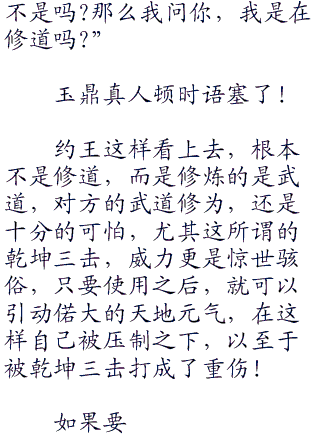 不是吗?那么我问你，我是在
修道吗?”
玉鼎真人顿时语塞了!
约王这样看上去，根本
不是修道，而是修炼的是武
道，对方的武道修为，还是
十分的可怕，尤其这所谓的
乾坤三击，威力更是惊世骇
俗，只要使用之后，就可以
引动偌大的天地元气，在这
样自己被压制之下，以至于
被乾坤三击打成了重伤!
如果要